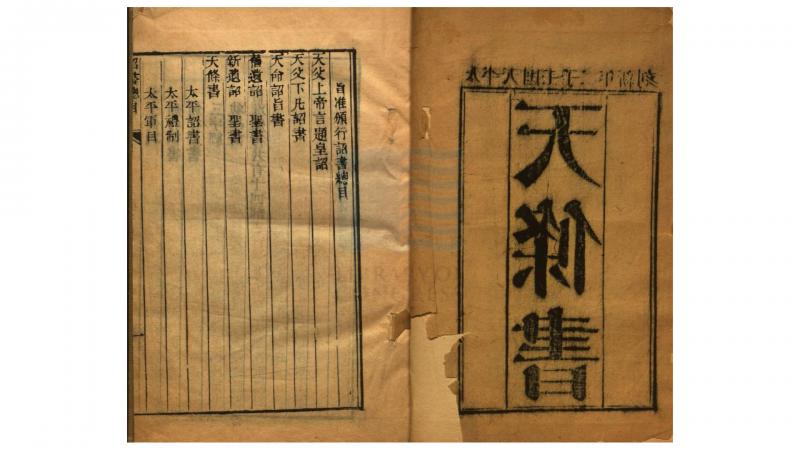 太平天囯壬子二年新刻
天條書
旨准頒行詔書總目
天父上帝言題皇詔
天父下凡詔書
天命詔旨書
舊遺詔 聖書
新遺詔 聖書
天條書
太平詔書
太平禮制
太平軍目
詔書總目